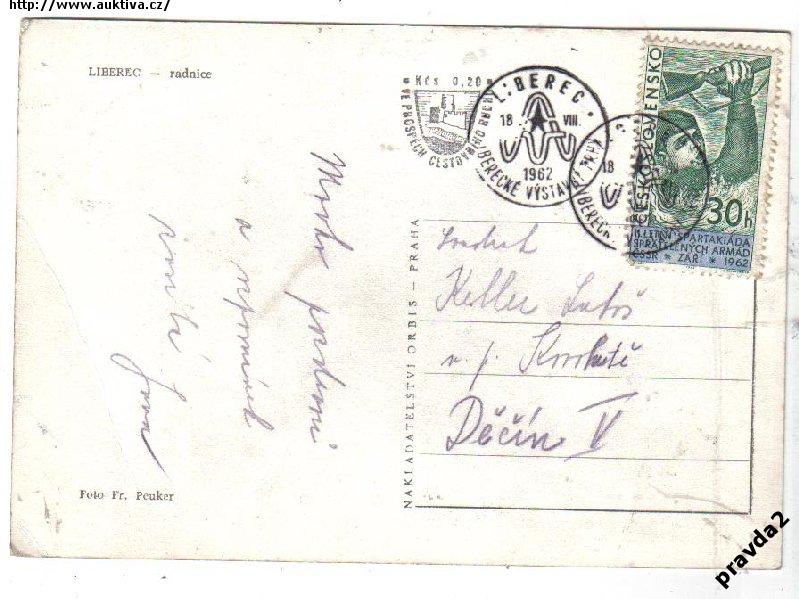 http://www.auktiva.cz/
LIBEREC — radnice
Kčs 0,20
VE PROSPĚCH CESTOVNÍHO RUCHU
LIBEREC
18 VIII.
1962
LIBERECKÉ VÝSTAVNÍ TRHY
18
LIBEREC
ČESKOSLOVENSKO
30h
II. LETNÍ SPARTAKIÁDA
SPŘÁTELENÝCH ARMÁD
ČSSR * ZÁŘÍ * 1962
Mnoho pozdravů
a vzpomínek
Soudruh
Keller
n. p.
Děčín V
NAKLADATELSTVÍ ORBIS — PRAHA
Foto Fr. Peuker
pravda2